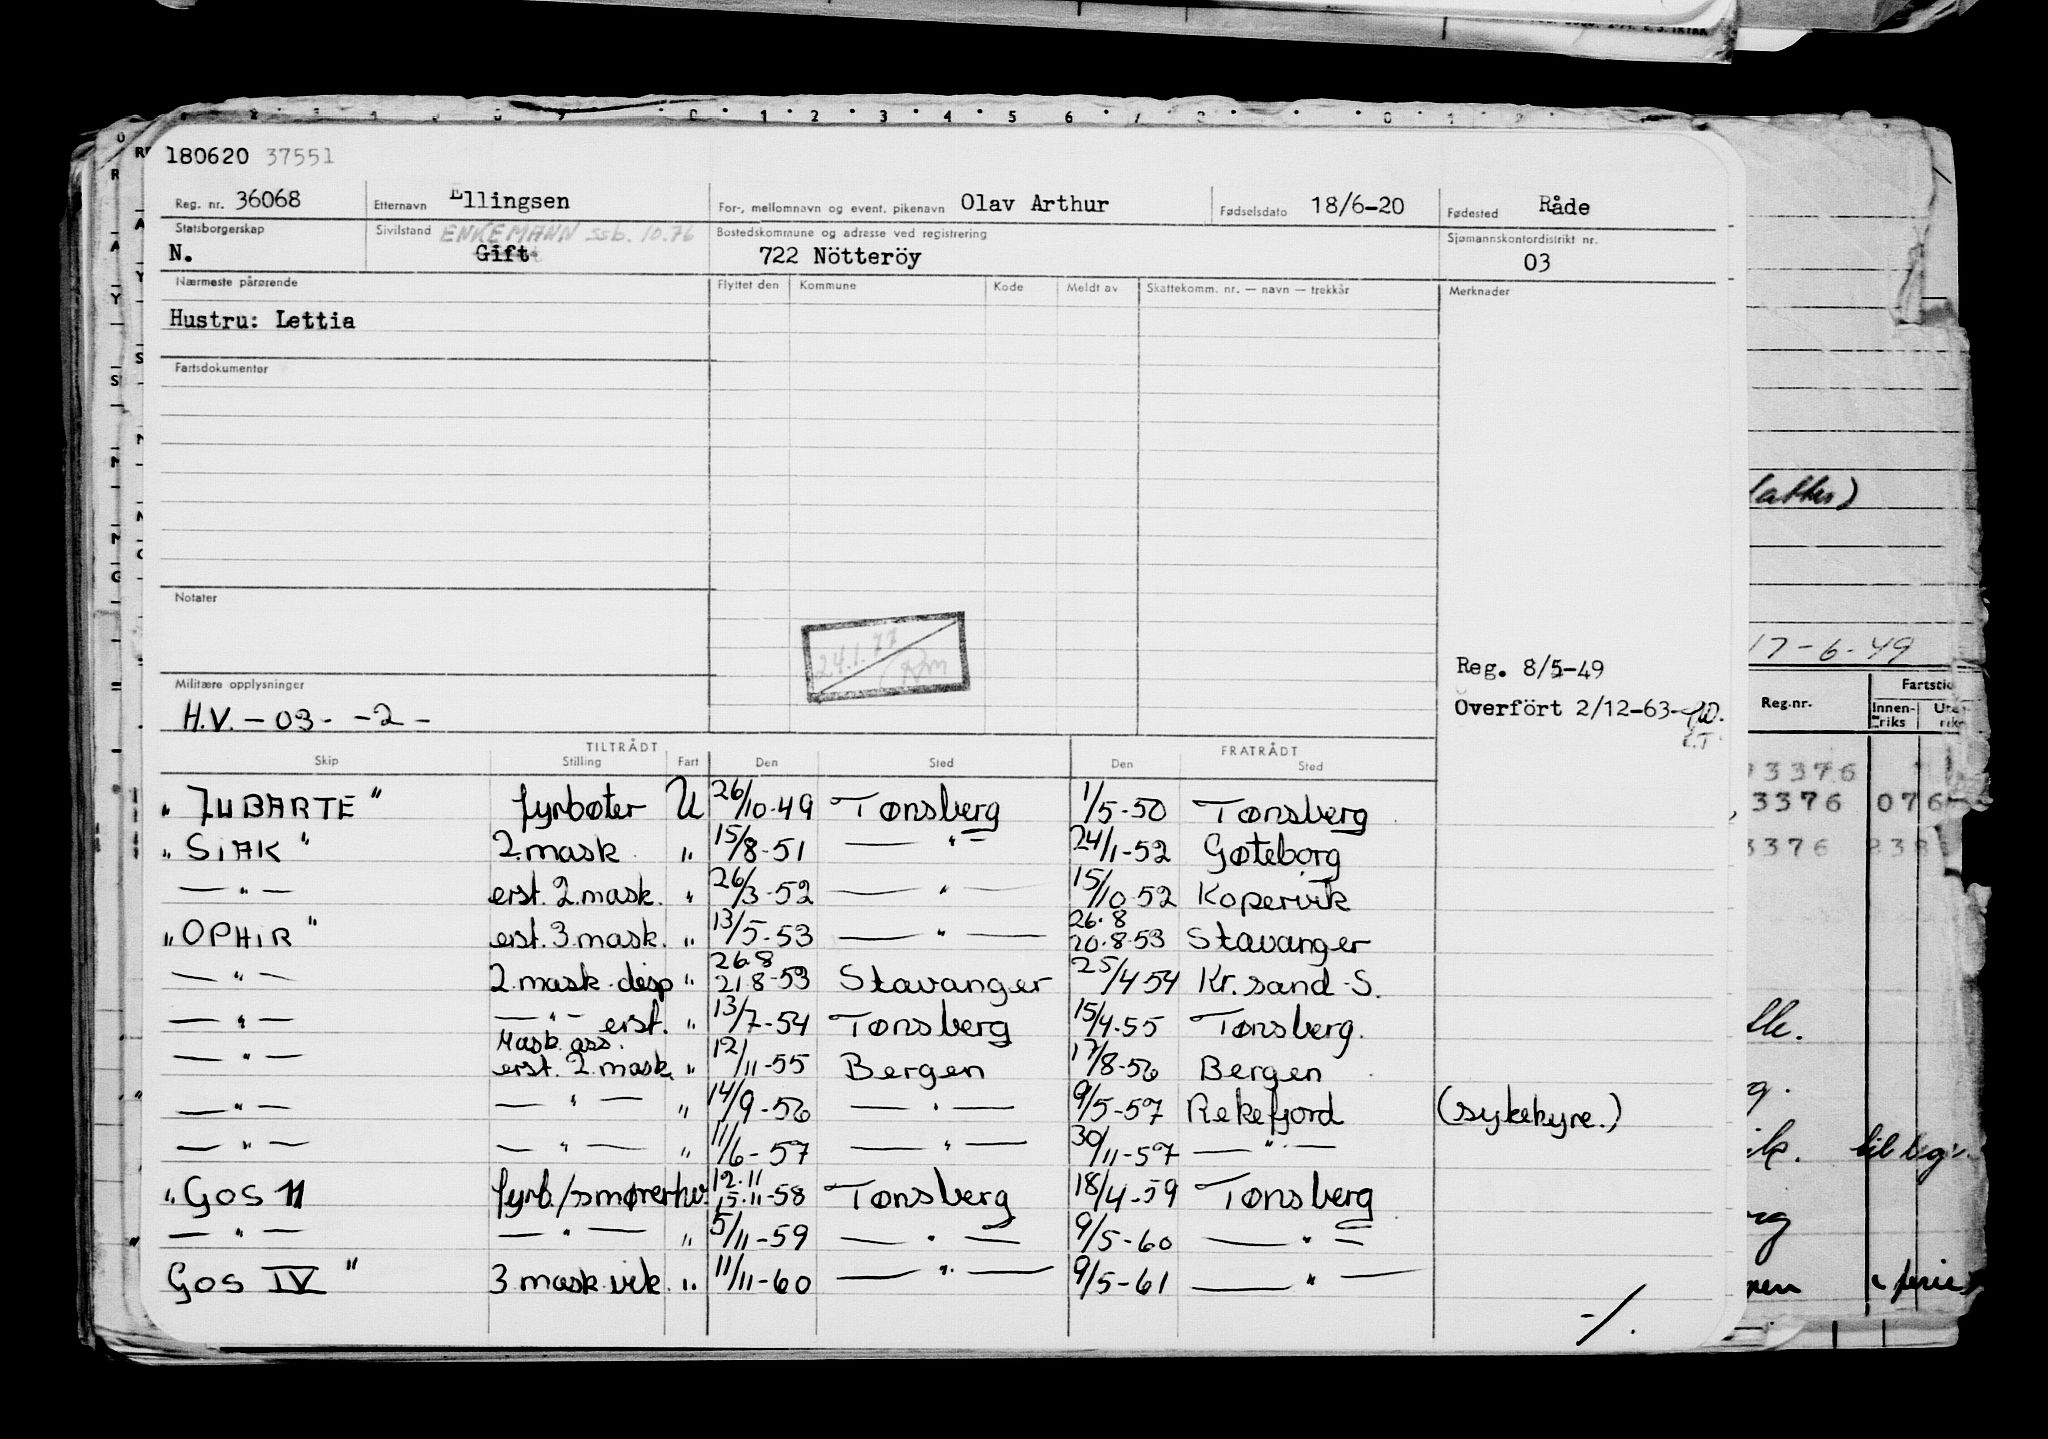 180620 37551
Reg. nr. 36068 Etternavn Ellingsen For-, mellomnavn og event. pikenavn Olav Arthur Fødselsdato 18/6-20 Fødested Råde
Statsborgerskap N. Sivilstand ENKEMANN ssb. 10.76 Gift Bostedskommune og adresse ved registrering 722 Nötteröy Sjømannskontordistrikt nr. 03
Nærmeste pårørende Flyttet den Kommune Kode Meldt av Skattekomm. nr. — navn — trekkår Merknader
Hustru: Lettia
Fartsdokumenter
Notater
24.1.77
Reg. 8/5-49
Militære opplysninger
Overfört 2/12-63-
H.V. - 03 - -2 -
TILTRÅDT FRATRÅDT
Skip Stilling Fart Den Sted Den Sted
"JUBARTE" fyrbøter U 26/10-49 Tønsberg 1/5-50 Tønsberg
"SIAK" 2.mask. " 15/8-51 —"— 24/1-52 Gøteborg
—"— erst. 2.mask. " 26/3-52 —"— 15/10-52 Kopervik
"OPHIR" erst. 3.mask. " 13/5-53 —"— 26.8 20.8-53 Stavanger
—"— 2.mask.disp " 26.8 21.8-53 Stavanger 25/4-54 Kr.sand-S.
—"— —"— erst. " 13/7-54 Tønsberg 15/4-55 Tønsberg.
—"— Mask. ass. erst. 2.mask. " 12/11-55 Bergen 17/8-56 Bergen
—"— —"— " 14/9-56 —"— 9/5-57 Rekefjord (sykehyre.)
—"— —"— " 11/6-57 —"— 30/11-57 —"—
"GOS 11 fyrb./smører hv. 12.11 15.11-58 Tønsberg 18/4-59 Tønsberg
—"— —"— " 5/11-59 —"— 9/5-60 —"—
GOS IV" 3 mask.vik. " 11/11-60 —"— 9/5-61 —"—
-/.
17-6-49
Reg.nr. Fartstid
Innen-riks
3376
3376 076
3376